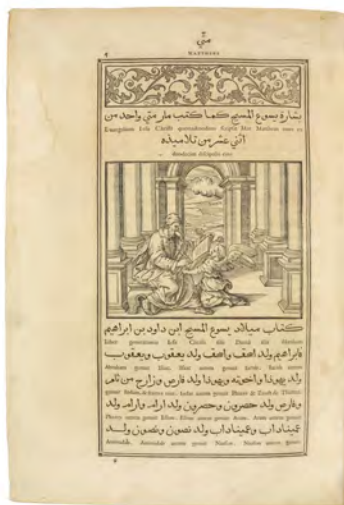 متى
MATTHAEI
بشارة يسوع المسيح كما كتب مار متى واحد من
Euangelium Iesu Christi quemadmodum scripsit Mar Mattheus unus ex
اثني عشر من تلاميذه
duodecim discipulis eius.
كتاب ميلاد يسوع المسيح ابن داود بن ابراهيم
Liber generationis Iesu Christi filii Dauid filii Abraham
فابراهيم ولد اسحق واسحق ولد يعقوب ويعقوب
Abraham genuit Isaac. Isaac autem genuit Iacob. Iacob autem
ولد يهودا واخوته ويهودا ولد فارص وزارح من تامر
genuit Iudam, & fratres eius. Iudas autem genuit Phares & Zarah de Thamar.
وفارص ولد حصرون وحصرون ولد ارام وارام ولد
Phares autem genuit Esron. Esron autem genuit Aram. Aram autem genuit
عميناداب وعميناداب ولد نصون ونصون ولد
Aminadab. Aminadab autem genuit Naason. Naason autem genuit